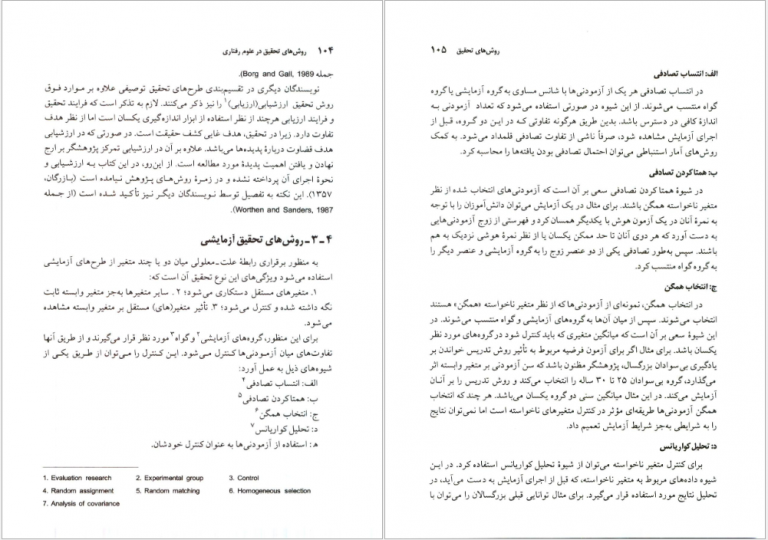 ۱۰۴ روش‌های تحقیق در علوم رفتاری
جمله Borg and Gall, 1989).
نویسندگان دیگری در تقسیم‌بندی طرح‌های تحقیق توصیفی علاوه بر موارد فوق
روش تحقیق ارزشیابی(ارزیابی)۱ را نیز ذکر می‌کنند. لازم به تذکر است که فرایند تحقیق
و فرایند ارزیابی هرچند از نظر استفاده از ابزار اندازه‌گیری یکسان است اما از نظر هدف
تفاوت دارد. زیرا در تحقیق، هدف غایی کشف حقیقت است. در صورتی که در ارزشیابی
هدف قضاوت دربارهٔ پدیده‌ها می‌باشد. علاوه بر آن در ارزشیابی تمرکز پژوهشگر بر ارج
نهادن و یافتن اهمیت پدیدهٔ مورد مطالعه است. از این‌رو، در این کتاب به ارزشیابی و
نحوهٔ اجرای آن پرداخته نشده و در زمرهٔ روش‌های پژوهش نیامده است (بازرگان،
۱۳۵۷). این نکته به تفصیل توسط نویسندگان دیگر نیز تأکید شده است (از جمله
Worthen and Sanders, 1987).
۴ـ۳ـ روش‌های تحقیق آزمایشی
به منظور برقراری رابطهٔ علت-معلولی میان دو یا چند متغیر از طرح‌های آزمایشی
استفاده می‌شود ویژگی‌های این نوع تحقیق آن است که:
۱. متغیرهای مستقل دستکاری می‌شود؛ ۲. سایر متغیرها به‌جز متغیر وابسته ثابت
نگه داشته شده و کنترل می‌شود؛ ۳. تأثیر متغیر(های) مستقل بر متغیر وابسته مشاهده
می‌شود.
برای این منظور، گروه‌های آزمایشی۲ و گواه۳ مورد نظر قرار می‌گیرند و از طریق آنها
تفاوت‌های میان آزمودنی‌ها کنترل می‌شود. این کنترل را می‌توان از طریق یکی از
شیوه‌های ذیل به عمل آورد:
الف: انتساب تصادفی۴
ب: همتاکردن تصادفی۵
ج: انتخاب همگن۶
د: تحلیل کواریانس۷
ه: استفاده از آزمودنی‌ها به عنوان کنترل خودشان.
1. Evaluation research 2. Experimental group 3. Control
4. Random assignment 5. Random matching 6. Homogeneous selection
7. Analysis of covariance
روش‌های تحقیق ۱۰۵
الف: انتساب تصادفی
در انتساب تصادفی هر یک از آزمودنی‌ها با شانس مساوی به گروه آزمایشی یا گروه
گواه منتسب می‌شوند. از این شیوه در صورتی استفاده می‌شود که تعداد آزمودنی به
اندازهٔ کافی در دسترس باشد. بدین طریق هرگونه تفاوتی که در این دو گروه، قبل از
اجرای آزمایش مشاهده شود، صرفاً ناشی از تفاوت تصادفی قلمداد می‌شود. به کمک
روش‌های آمار استنباطی می‌توان احتمال تصادفی بودن یافته‌ها را محاسبه کرد.
ب: همتاکردن تصادفی
در شیوهٔ همتا کردن تصادفی سعی بر آن است که آزمودنی‌های انتخاب شده از نظر
متغیر ناخواسته همگن باشند. برای مثال در یک آزمایش می‌توان دانش‌آموزان را با توجه
به نمرهٔ آنان در یک آزمون هوش با یکدیگر همسان کرد و فهرستی از زوج آزمودنی‌هایی
به دست آورد که هر دوی آنان تا حد ممکن یکسان یا از نظر نمرهٔ هوشی نزدیک به هم
باشند. سپس به‌طور تصادفی یکی از دو عنصر زوج را به گروه آزمایشی و عنصر دیگر را
به گروه گواه منتسب کرد.
ج: انتخاب همگن
در انتخاب همگن، نمونه‌ای از آزمودنی‌ها که از نظر متغیر ناخواسته «همگن» هستند
انتخاب می‌شوند. سپس از میان آن‌ها به گروه‌های آزمایشی و گواه منتسب می‌شوند. در
این شیوهٔ سعی بر آن است که میانگین متغیری که باید کنترل شود در گروه‌های مورد نظر
یکسان باشد. برای مثال اگر برای آزمون فرضیه مربوط به تأثیر روش تدریس خواندن بر
یادگیری بی‌سوادان بزرگسال، پژوهشگر مظنون باشد که سن آزمودنی بر متغیر وابسته اثر
می‌گذارد، گروه بی‌سوادان ۲۵ تا ۳۰ ساله را انتخاب می‌کند و روش تدریس را بر آنان
آزمایش می‌کند. در این مثال میانگین سنی دو گروه یکسان می‌باشد. هر چند که انتخاب
همگن آزمودنی‌ها طریقه‌ای مؤثر در کنترل متغیرهای ناخواسته است اما نمی‌توان نتایج
را به شرایطی به‌جز شرایط آزمایش تعمیم داد.
د: تحلیل کواریانس
برای کنترل متغیر ناخواسته می‌توان از شیوهٔ تحلیل کواریانس استفاده کرد. در این
شیوه داده‌های مربوط به متغیر ناخواسته، که قبل از اجرای آزمایش به دست می‌آید، در
تحلیل نتایج مورد استفاده قرار می‌گیرد. برای مثال توانایی قبلی بزرگسالان را می‌توان با